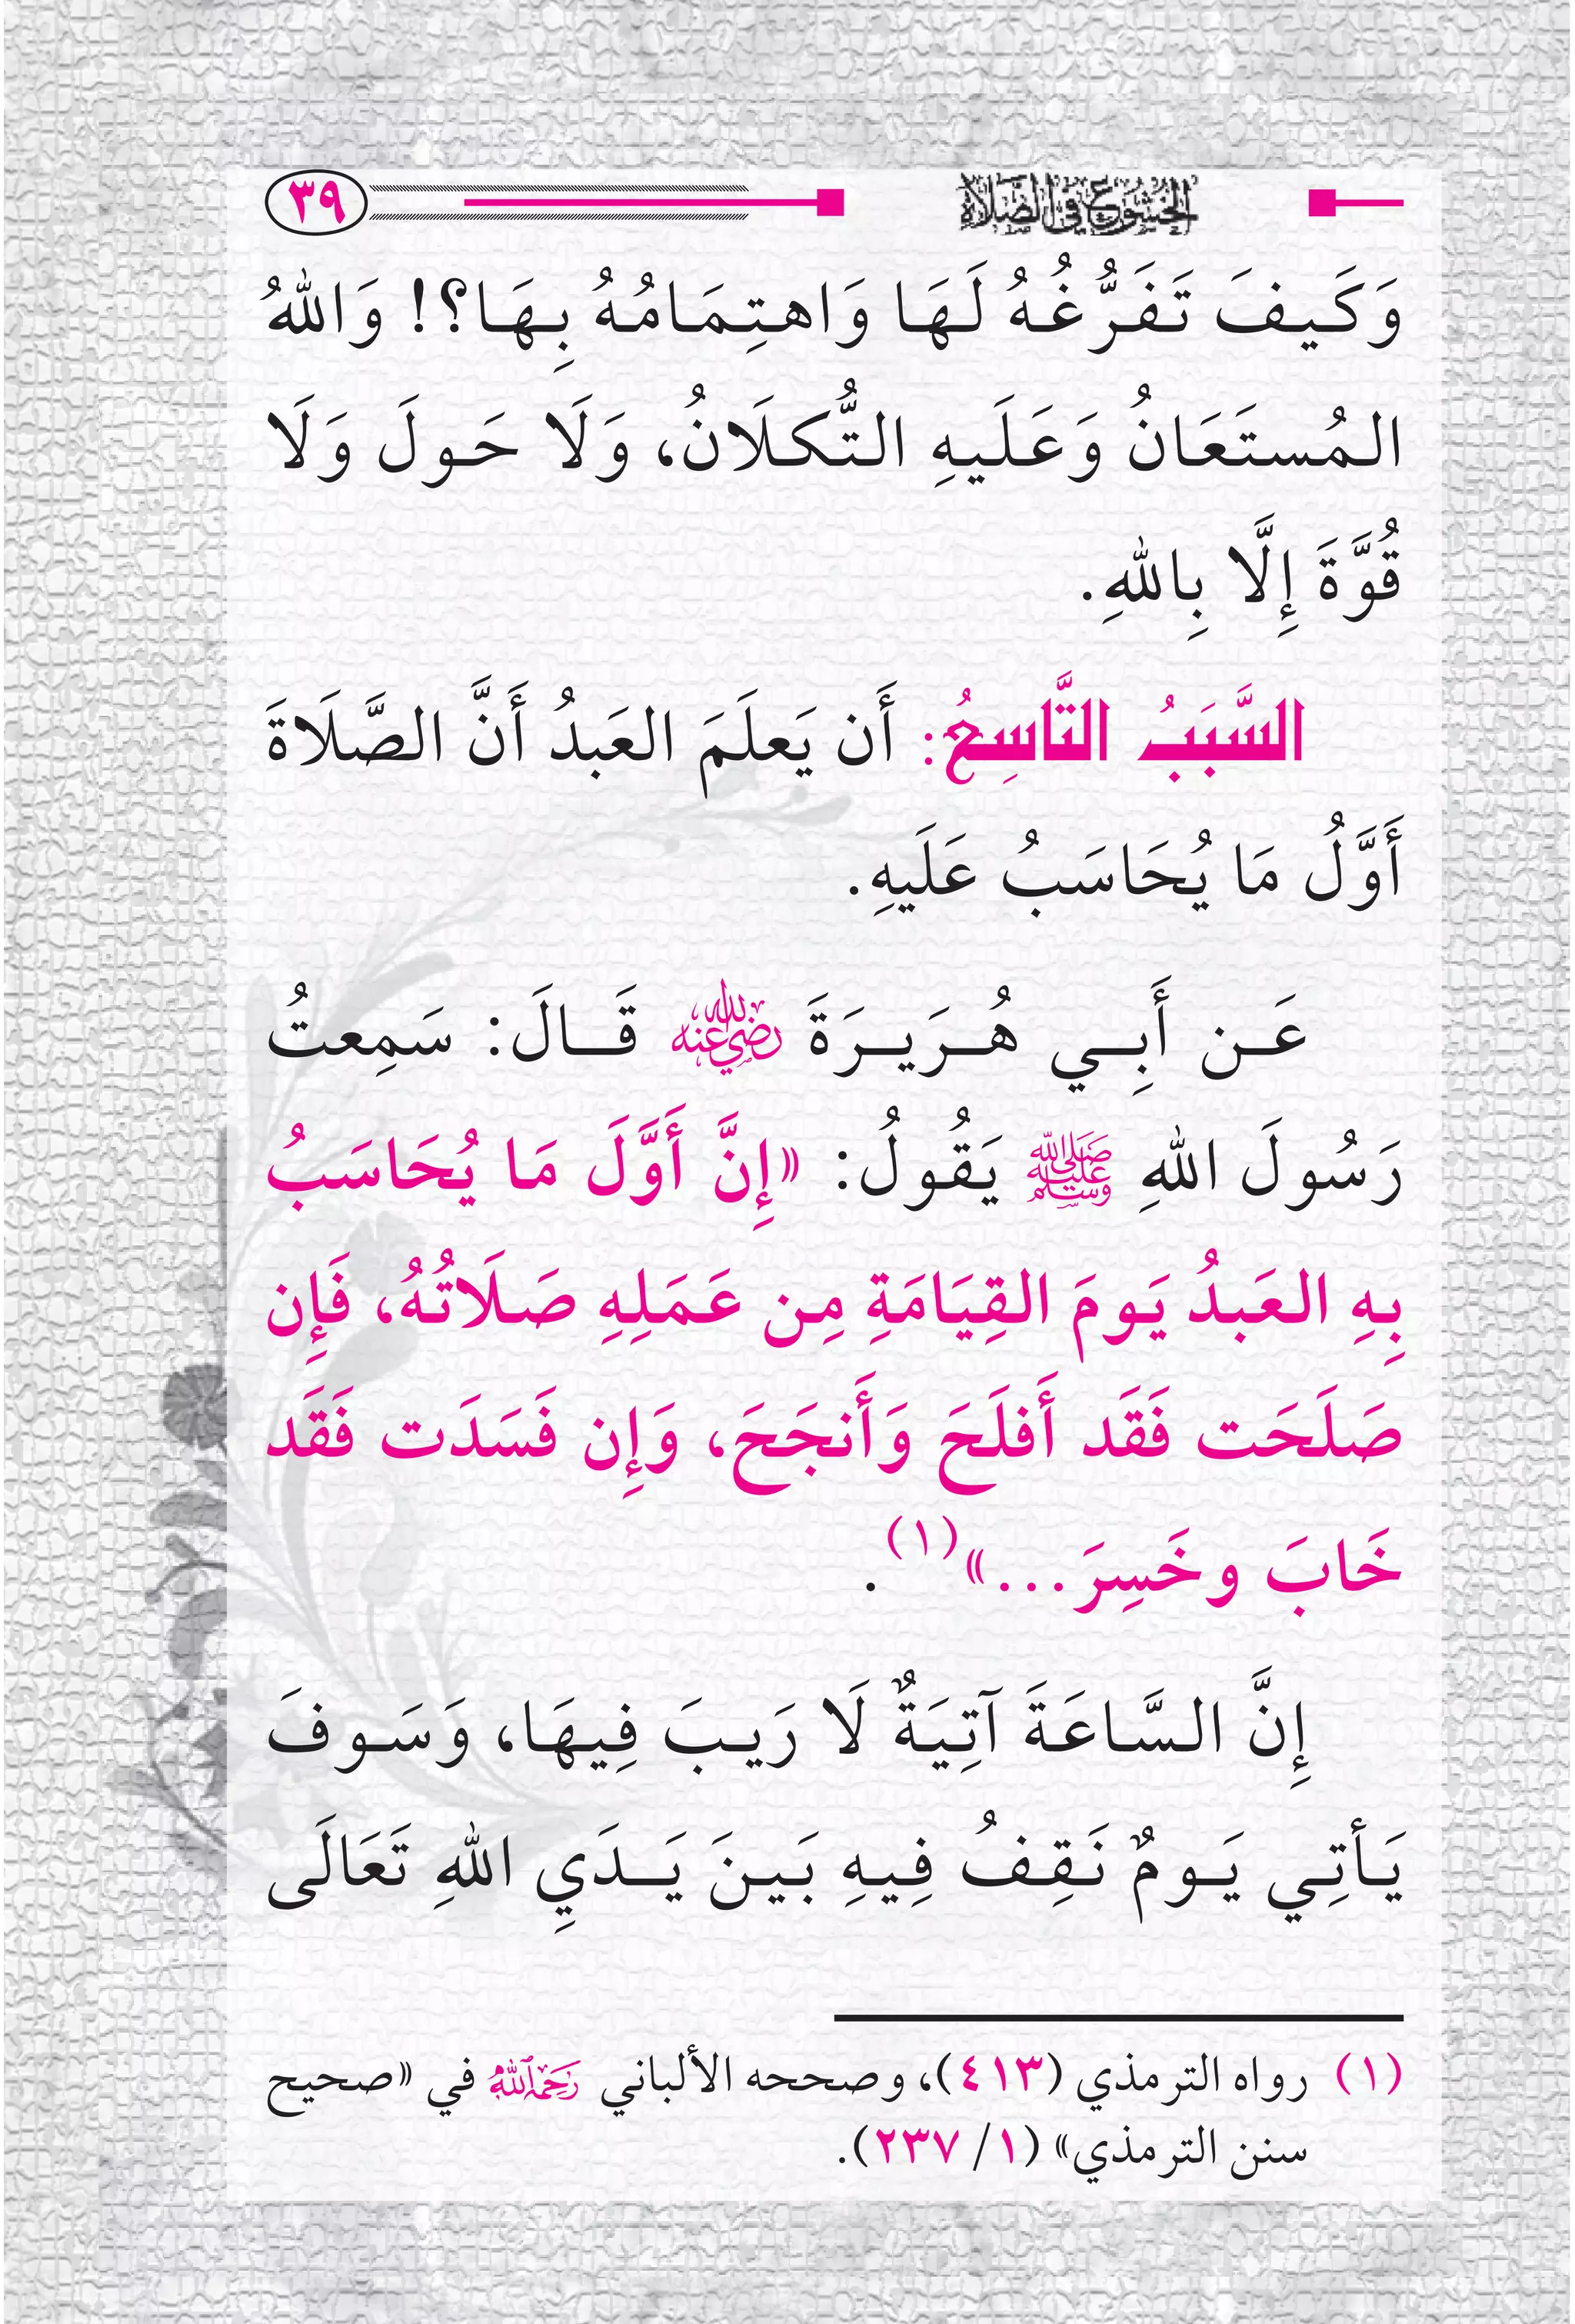 الخشوع في الصلاة
٣٩
وَكَيفَ تَفَرُّغُهُ لَهَا وَاهتِمَامُهُ بِهَا؟! وَاللهُ
المُستَعَانُ وَعَلَيهِ التُّكلَانُ، وَلَا حَولَ وَلَا
قُوَّةَ إِلَّا بِاللهِ.
السَّبَبُ التَّاسِعُ: أَن يَعلَمَ العَبدُ أَنَّ الصَّلَاةَ
أَوَّلُ مَا يُحَاسَبُ عَلَيهِ.
عَن أَبِي هُرَيرَةَ رضي الله عنه قَالَ: سَمِعتُ
رَسُولَ اللهِ ﷺ يَقُولُ: «إِنَّ أَوَّلَ مَا يُحَاسَبُ
بِهِ العَبدُ يَومَ القِيَامَةِ مِن عَمَلِهِ صَلَاتُهُ، فَإِن
صَلَحَت فَقَد أَفلَحَ وَأَنجَحَ، وَإِن فَسَدَت فَقَد
خَابَ وخَسِرَ...»(١).
إِنَّ السَّاعَةَ آتِيَةٌ لَا رَيبَ فِيهَا، وَسَوفَ
يَأتِي يَومٌ نَقِفُ فِيهِ بَينَ يَدَيِ اللهِ تَعَالَى
(١) رواه الترمذي (٤١٣)، وصححه الألباني رحمه الله في «صحيح
سنن الترمذي» (١/ ٢٣٧).